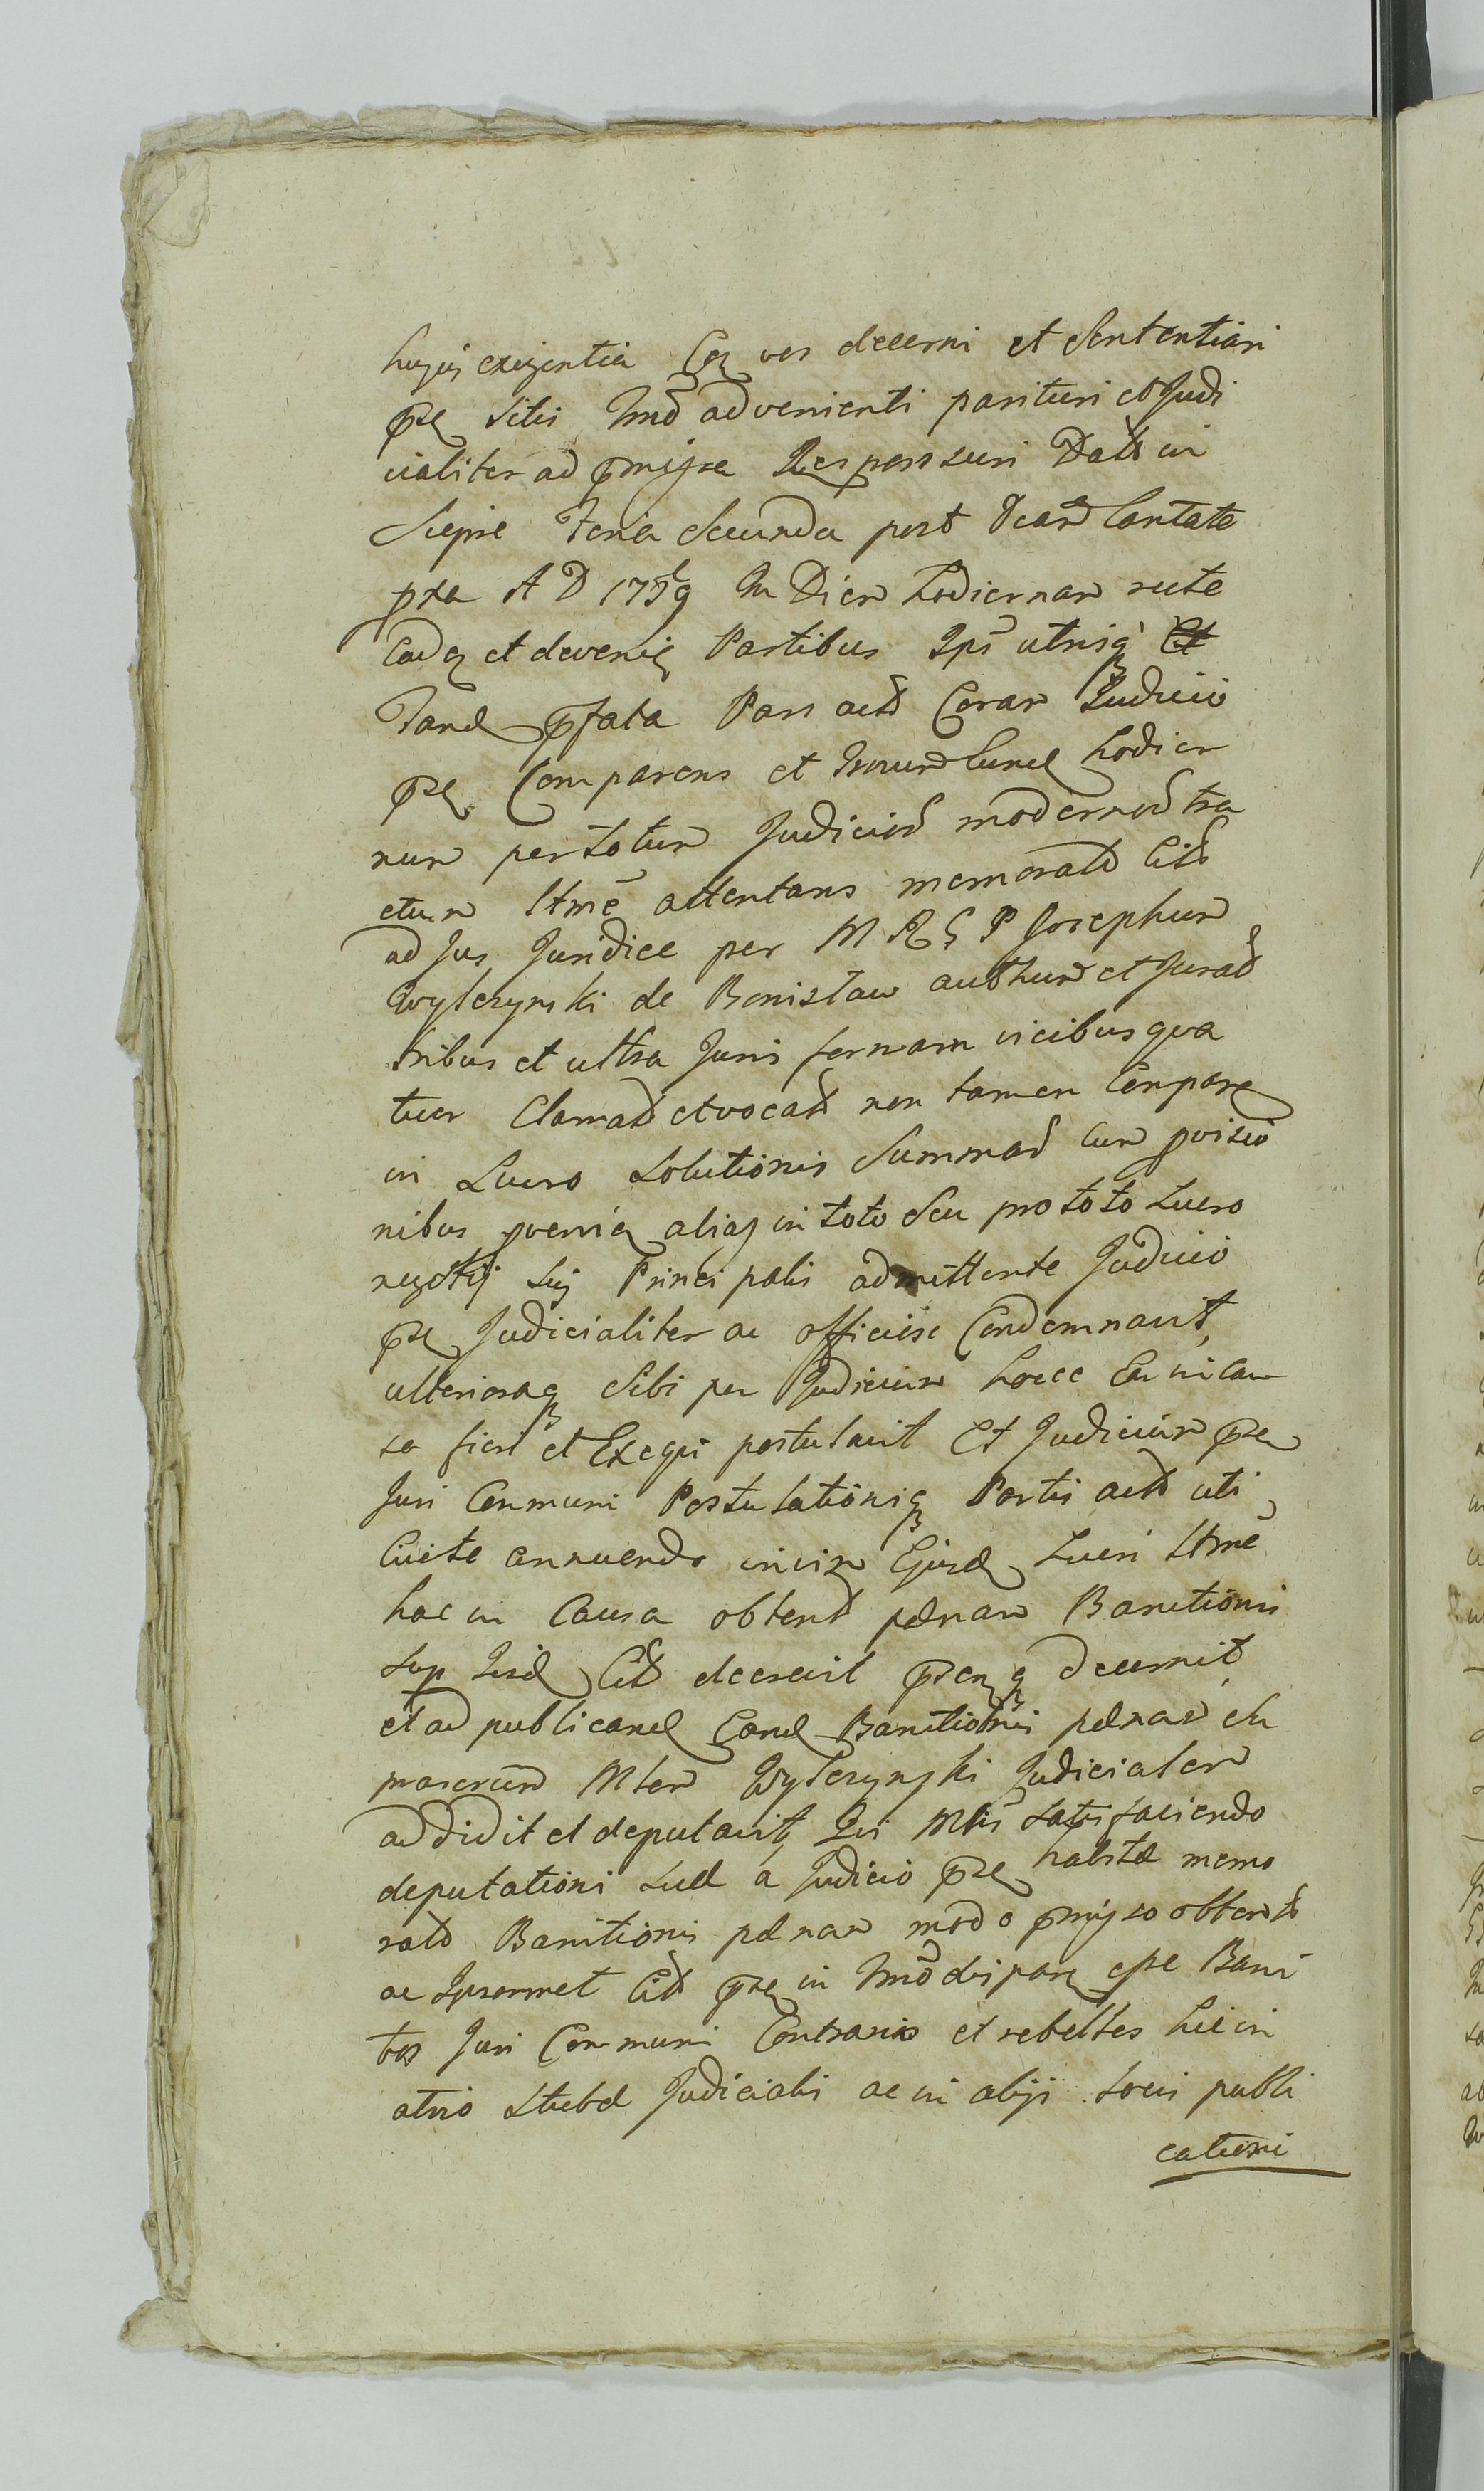 hujus exigentia Coꝝ vos decerni et Sententiari
pꝛe sitis Imo advenienti parituri et Judi
cialiter ad pmissa Responsuri Datt in
Sieprc Feria Secunda post Dcam Cantate
pxa A D 1759 In Diem Hodiernam recte
Caden et deveniẽ Partibus Ips utrisq
Tand pfata Pars actt Coram Judicio
pꝛe Comparens et Troumd lund hodier
num per totum Judiciord modernord tra
ctum ltme attentans memoratt Citt
ad Jus Juridice per M R G P Josephum
Wylezynski de Benislaw authum et Jurad
tribus et ultra Juris formam vicibus qua
tuor Clamatt et vocatt non tamen Compareñ
in Lucro Solutionis Summad cum pvisio
nibus pveniẽ alias in toto Seu pro toto Lucro
negotij sui Principalis admittente Judicio
pꝛe Judicialiter ac officiose Condemnavit,
ulterioraq Sibi per Judicium hocce Ea in Cau
sa fieri et Exequi postulavit Et Judicium pꝛe
Juri Communi Postulationiq Partis actt uti
licite annuendo in vim Ejusd Lucri ltme
hac in Causa obtentt pænam Banitionis
Sup Iisd Citt decrevit pꝛenq decernit,
et ad publicand Eand Banitionis pænam eh
Mtem Wylezynski Judicialem
addidit et deputavit, Qui Mlis satisfaciendo
deputationi suæ a Judicio pꝛe habitæ memo
ratt Banitionis pænam modo pmisso obtentt
ac Ipsosmet Citt pꝛe in Imo dispareñ esse Bani
tos Juri Communi Contrarios et rebelles hic in
atrio Stubæ Judicialis ac in alijs Locis publi
cationi